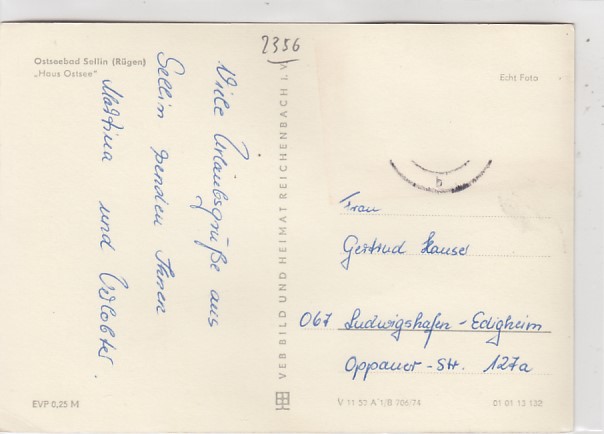 2356
Ostseebad Sellin (Rügen)
„Haus Ostsee"
Viele Urlaubsgrüße aus
Sellin senden Ihnen
Martina und
VEB BILD UND HEIMAT REICHENBACH I. V.
Echt Foto
b
Frau
Gertrud Hauser
067 Ludwigshafen - Edigheim
Oppauer - Str. 127a
EVP 0,25 M
V 11 50 A 1/B 706/74
01 01 13 132